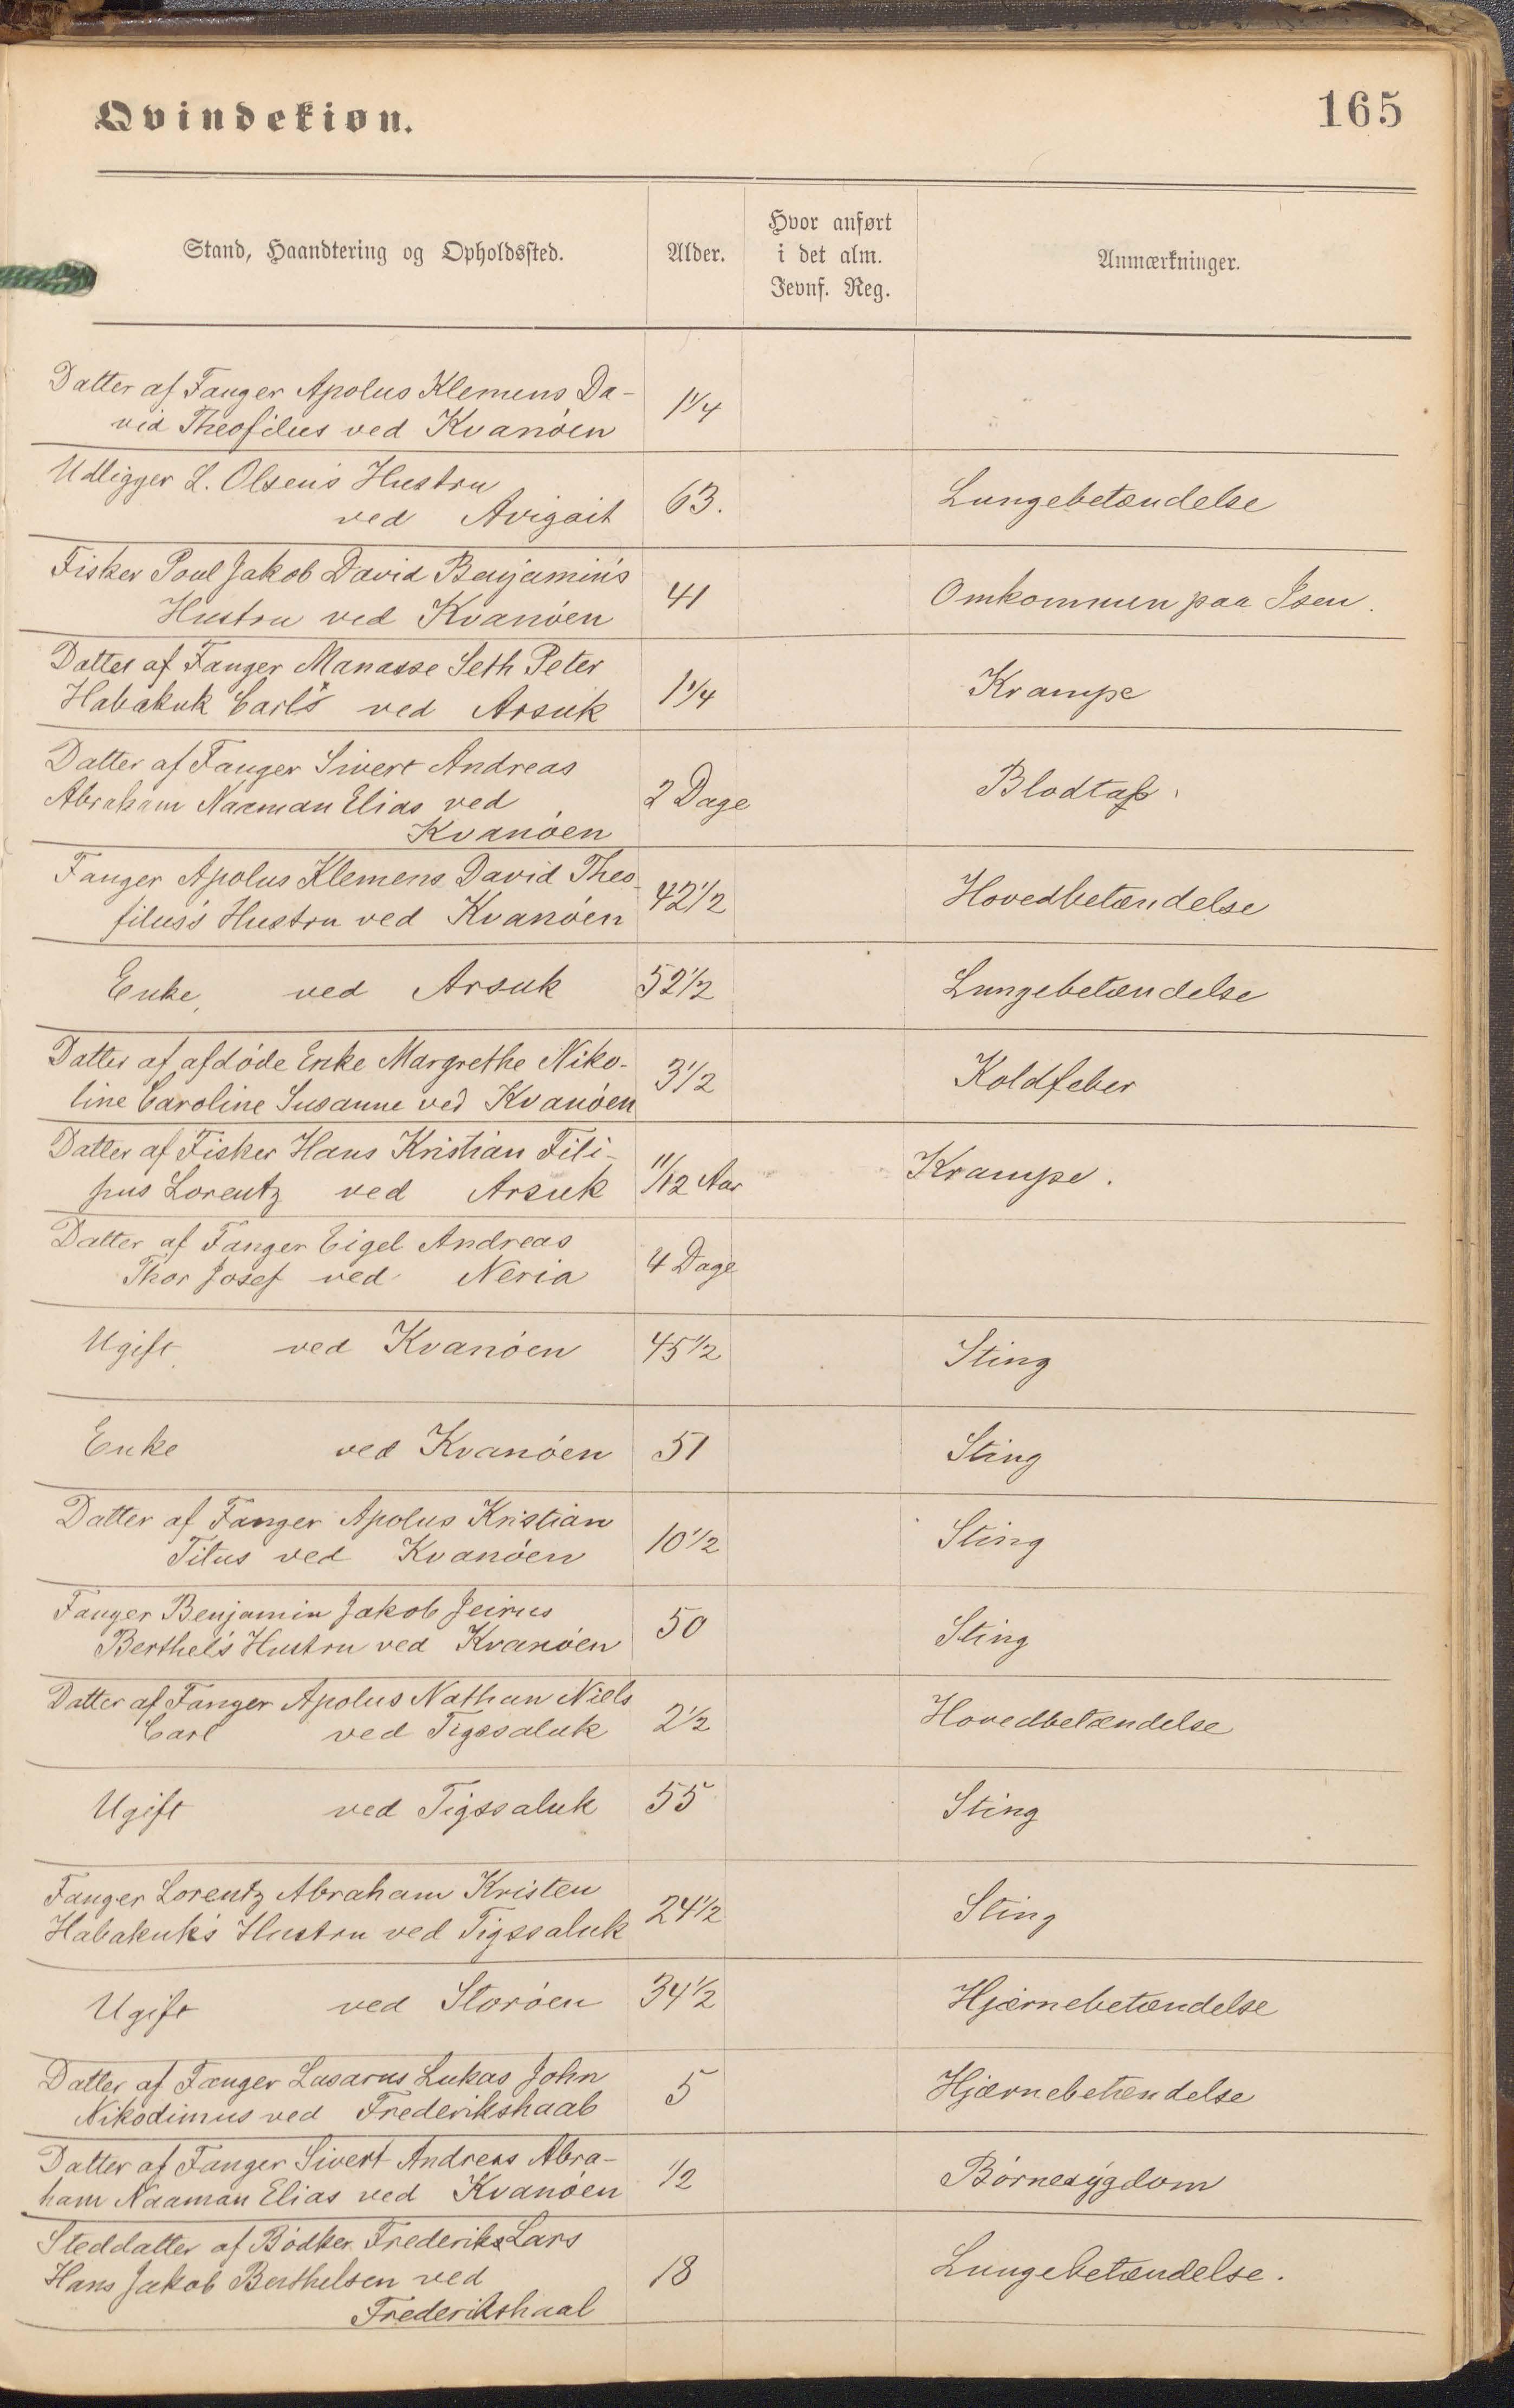 Qvindekiøn.
165
Stand, Haandtering og Opholdssted.
Alder.
Hvor anført
i det alm.
Jevnf. Reg.
Anmærkninger.
Datter af Fanger Apolus Klemens Da-
vid Theofilus ved Kvanöen
1 1/4
Udligger L. Olsen's Hustru
ved Avigait
63.
Lungebetændelse
Fisker Poul Jakob David Benjamin's
Hustru ved Kvanöen
41
Omkommen paa Isen.
Datter af Fanger Manasse Seth Peter
Habakuk Carl's ved Arsuk
1 1/4
Krampe
Datter af Fanger Sivert Andreas
Abraham Naaman Elias ved
Kvanöen
2 Dage
Blodtab.
Fanger Apolus Klemens David Theo-
filus's Hustru ved Kvanöen
42 1/2
Hovedbetændelse
Enke, ved Arsuk
52 1/2
Lungebetændelse
Datter af afdöde Enke Margrethe Niko-
line Caroline Susanne ved Kvanöen
3 1/2
Koldfeber
Datter af Fisker Hans Kristian Fili-
pus Lorentz ved Arsuk
11/12 Aar
Krampe.
Datter af Fanger Eigel Andreas
Thor Josef ved Neria
4 Dage
Ugift, ved Kvanöen
45 1/2
Sting
Enke ved Kvanöen
51
Sting
Datter af Fanger Apolus Kristian
Titus ved Kvanöen
10 1/2
Sting
Fanger Benjamin Jakob Jeirus
Berthel's Hustru ved Kvanöen
50
Sting
Datter af Fanger Apolus Nathan Niels
Carl ved Tigssaluk
2 1/2
Hovedbetændelse
Ugift ved Tigssaluk
55
Sting
Fanger Lorentz Abraham Kristen
Habakuk's Hustru ved Tigssaluk
24 1/2
Sting
Ugift ved Storöen
34 1/2
Hjærnebetændelse
Datter af Fanger Lasarus Lukas John
Nikodimus ved Frederikshaab
5
Hjærnebetændelse
Datter af Fanger Sivert Andreas Abra-
ham Naaman Elias ved Kvanöen
1/2
Börnesygdom
Steddatter af Bödker Frederik Lars
Hans Jakob Berthelsen ved
Frederikshaab
18
Lungebetændelse.